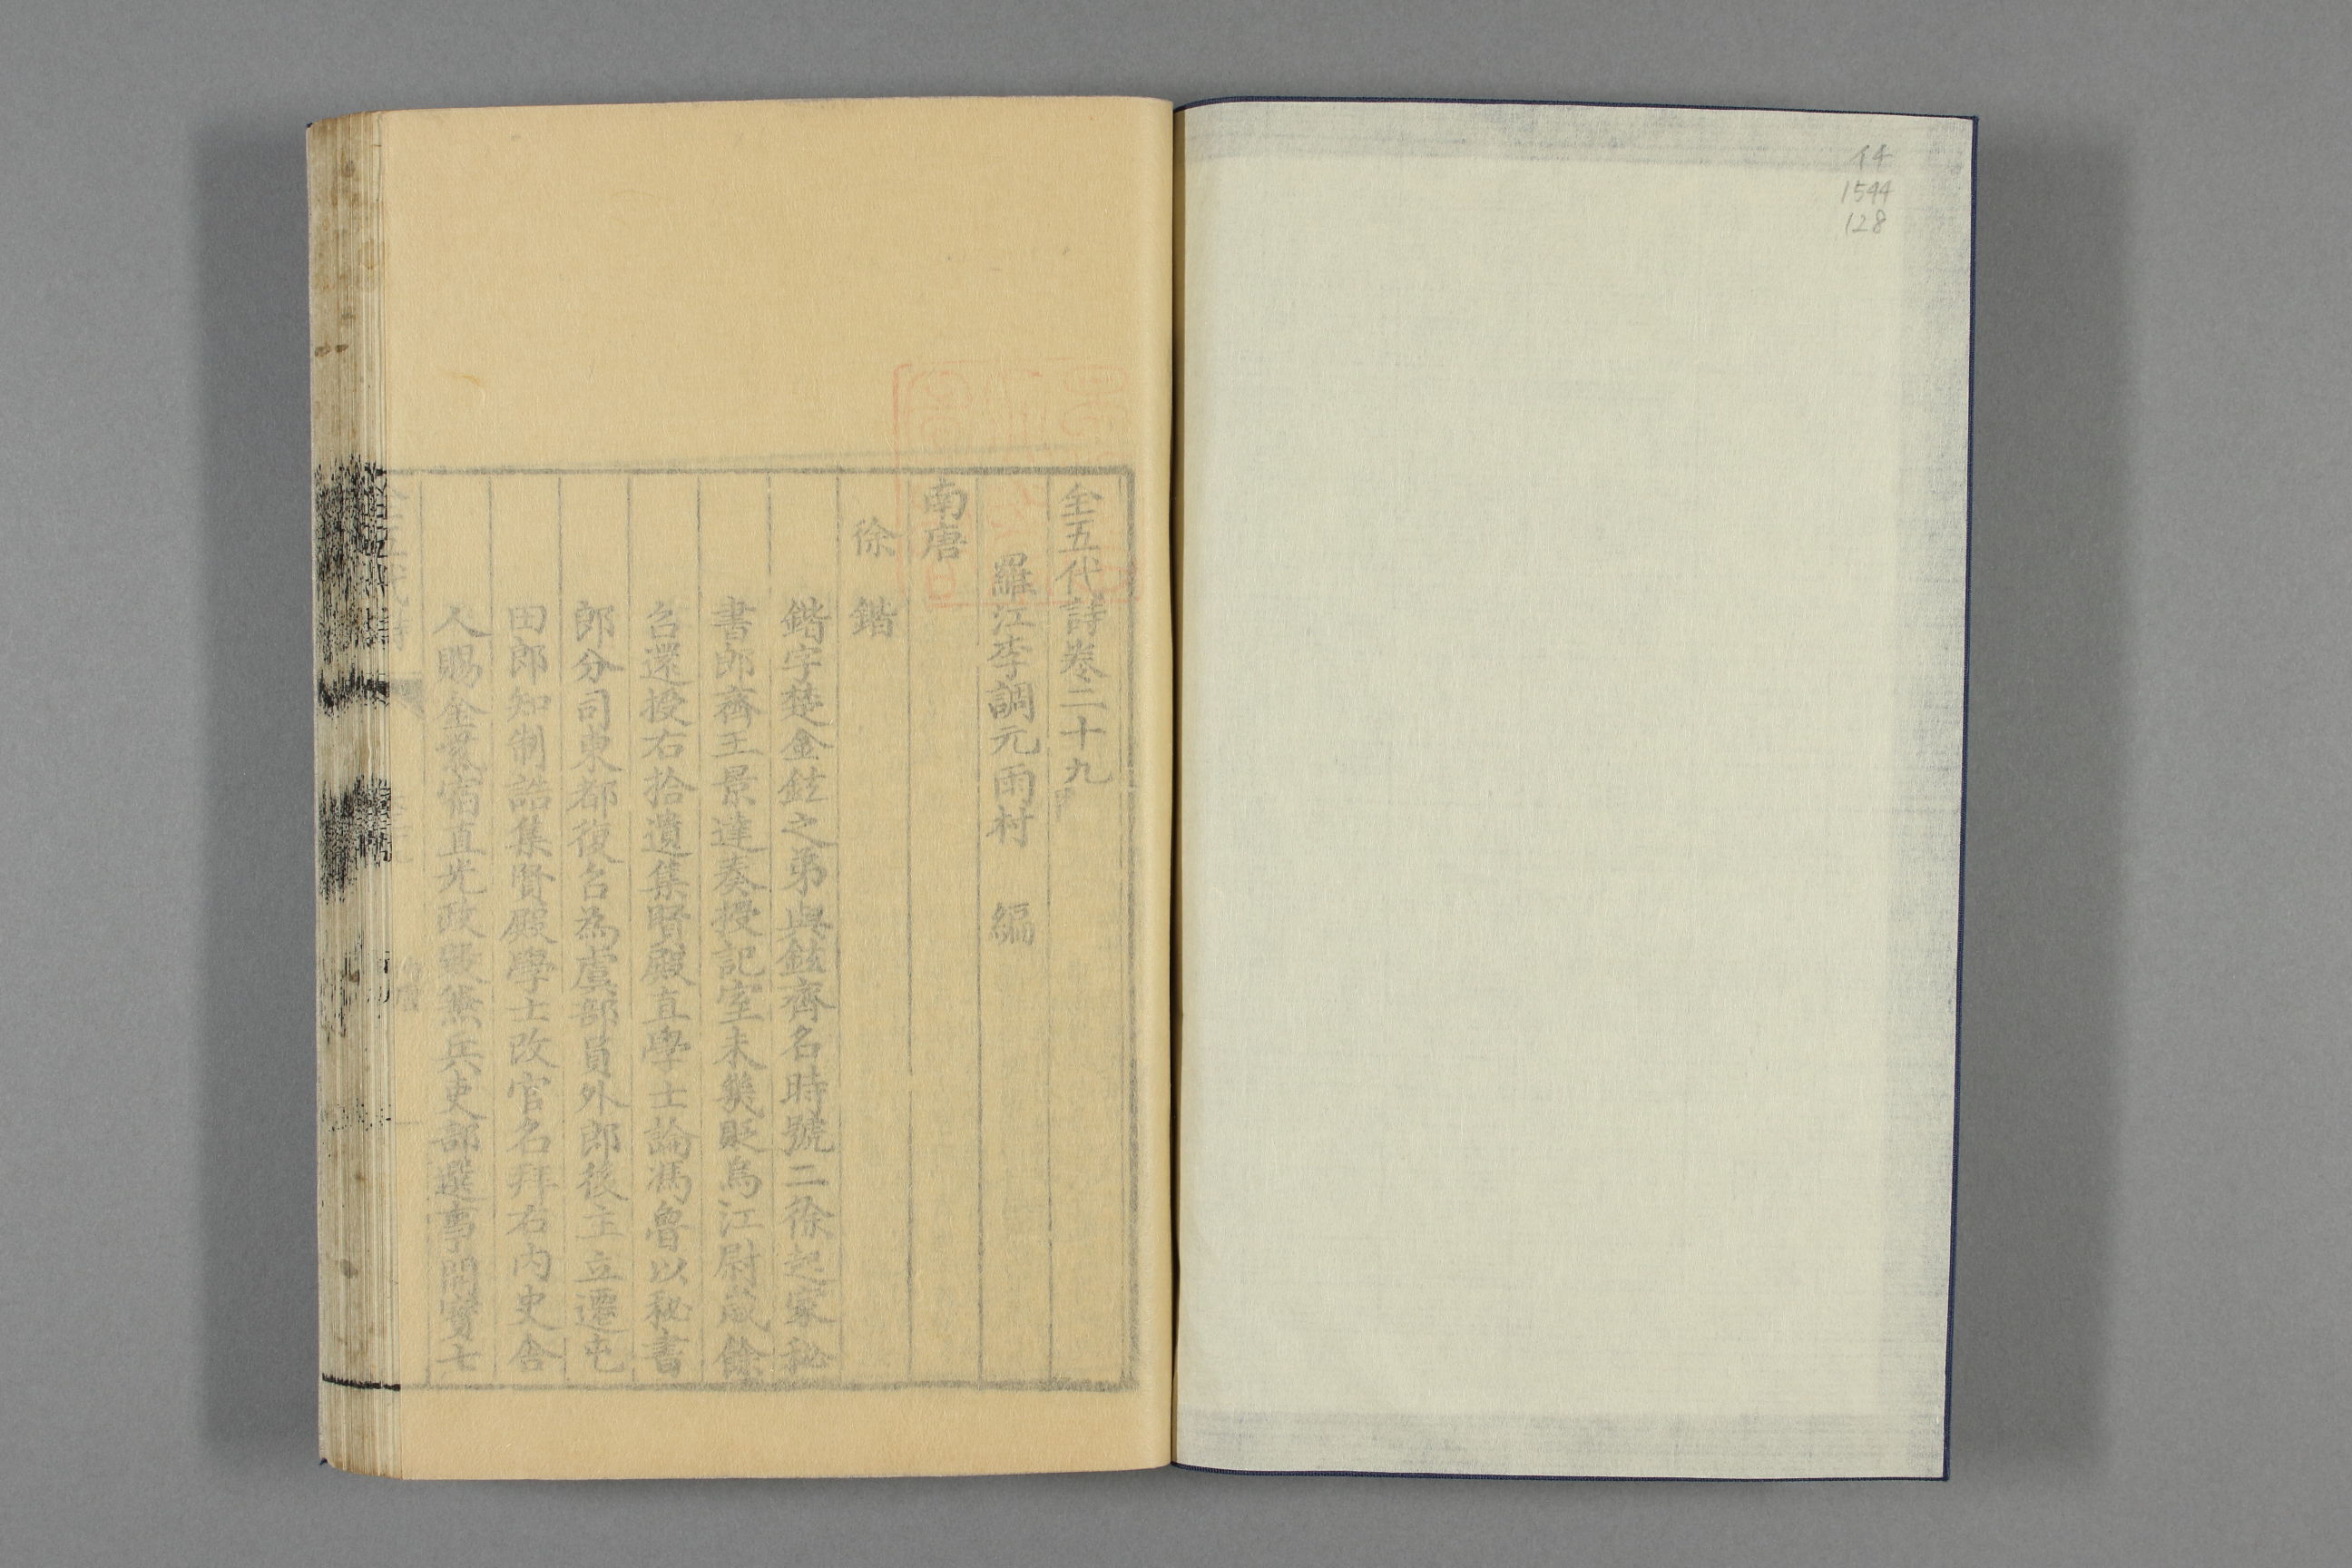 全五代詩卷二十九
羅江李調元雨村 編
南唐
徐鍇
鍇字楚金鉉之弟與鉉齊名時號二徐起家秘
書郎齊王景達奏授記室未幾貶烏江尉歲餘
召還授右拾遺集賢殿直學士論馮魯以秘書
郎分司東都復召為虞部員外郎後主立遷屯
田郎知制誥集賢殿學士改官名拜右內史舍
人賜金紫宿直光政殿兼兵吏部選事開寶七
1544
128